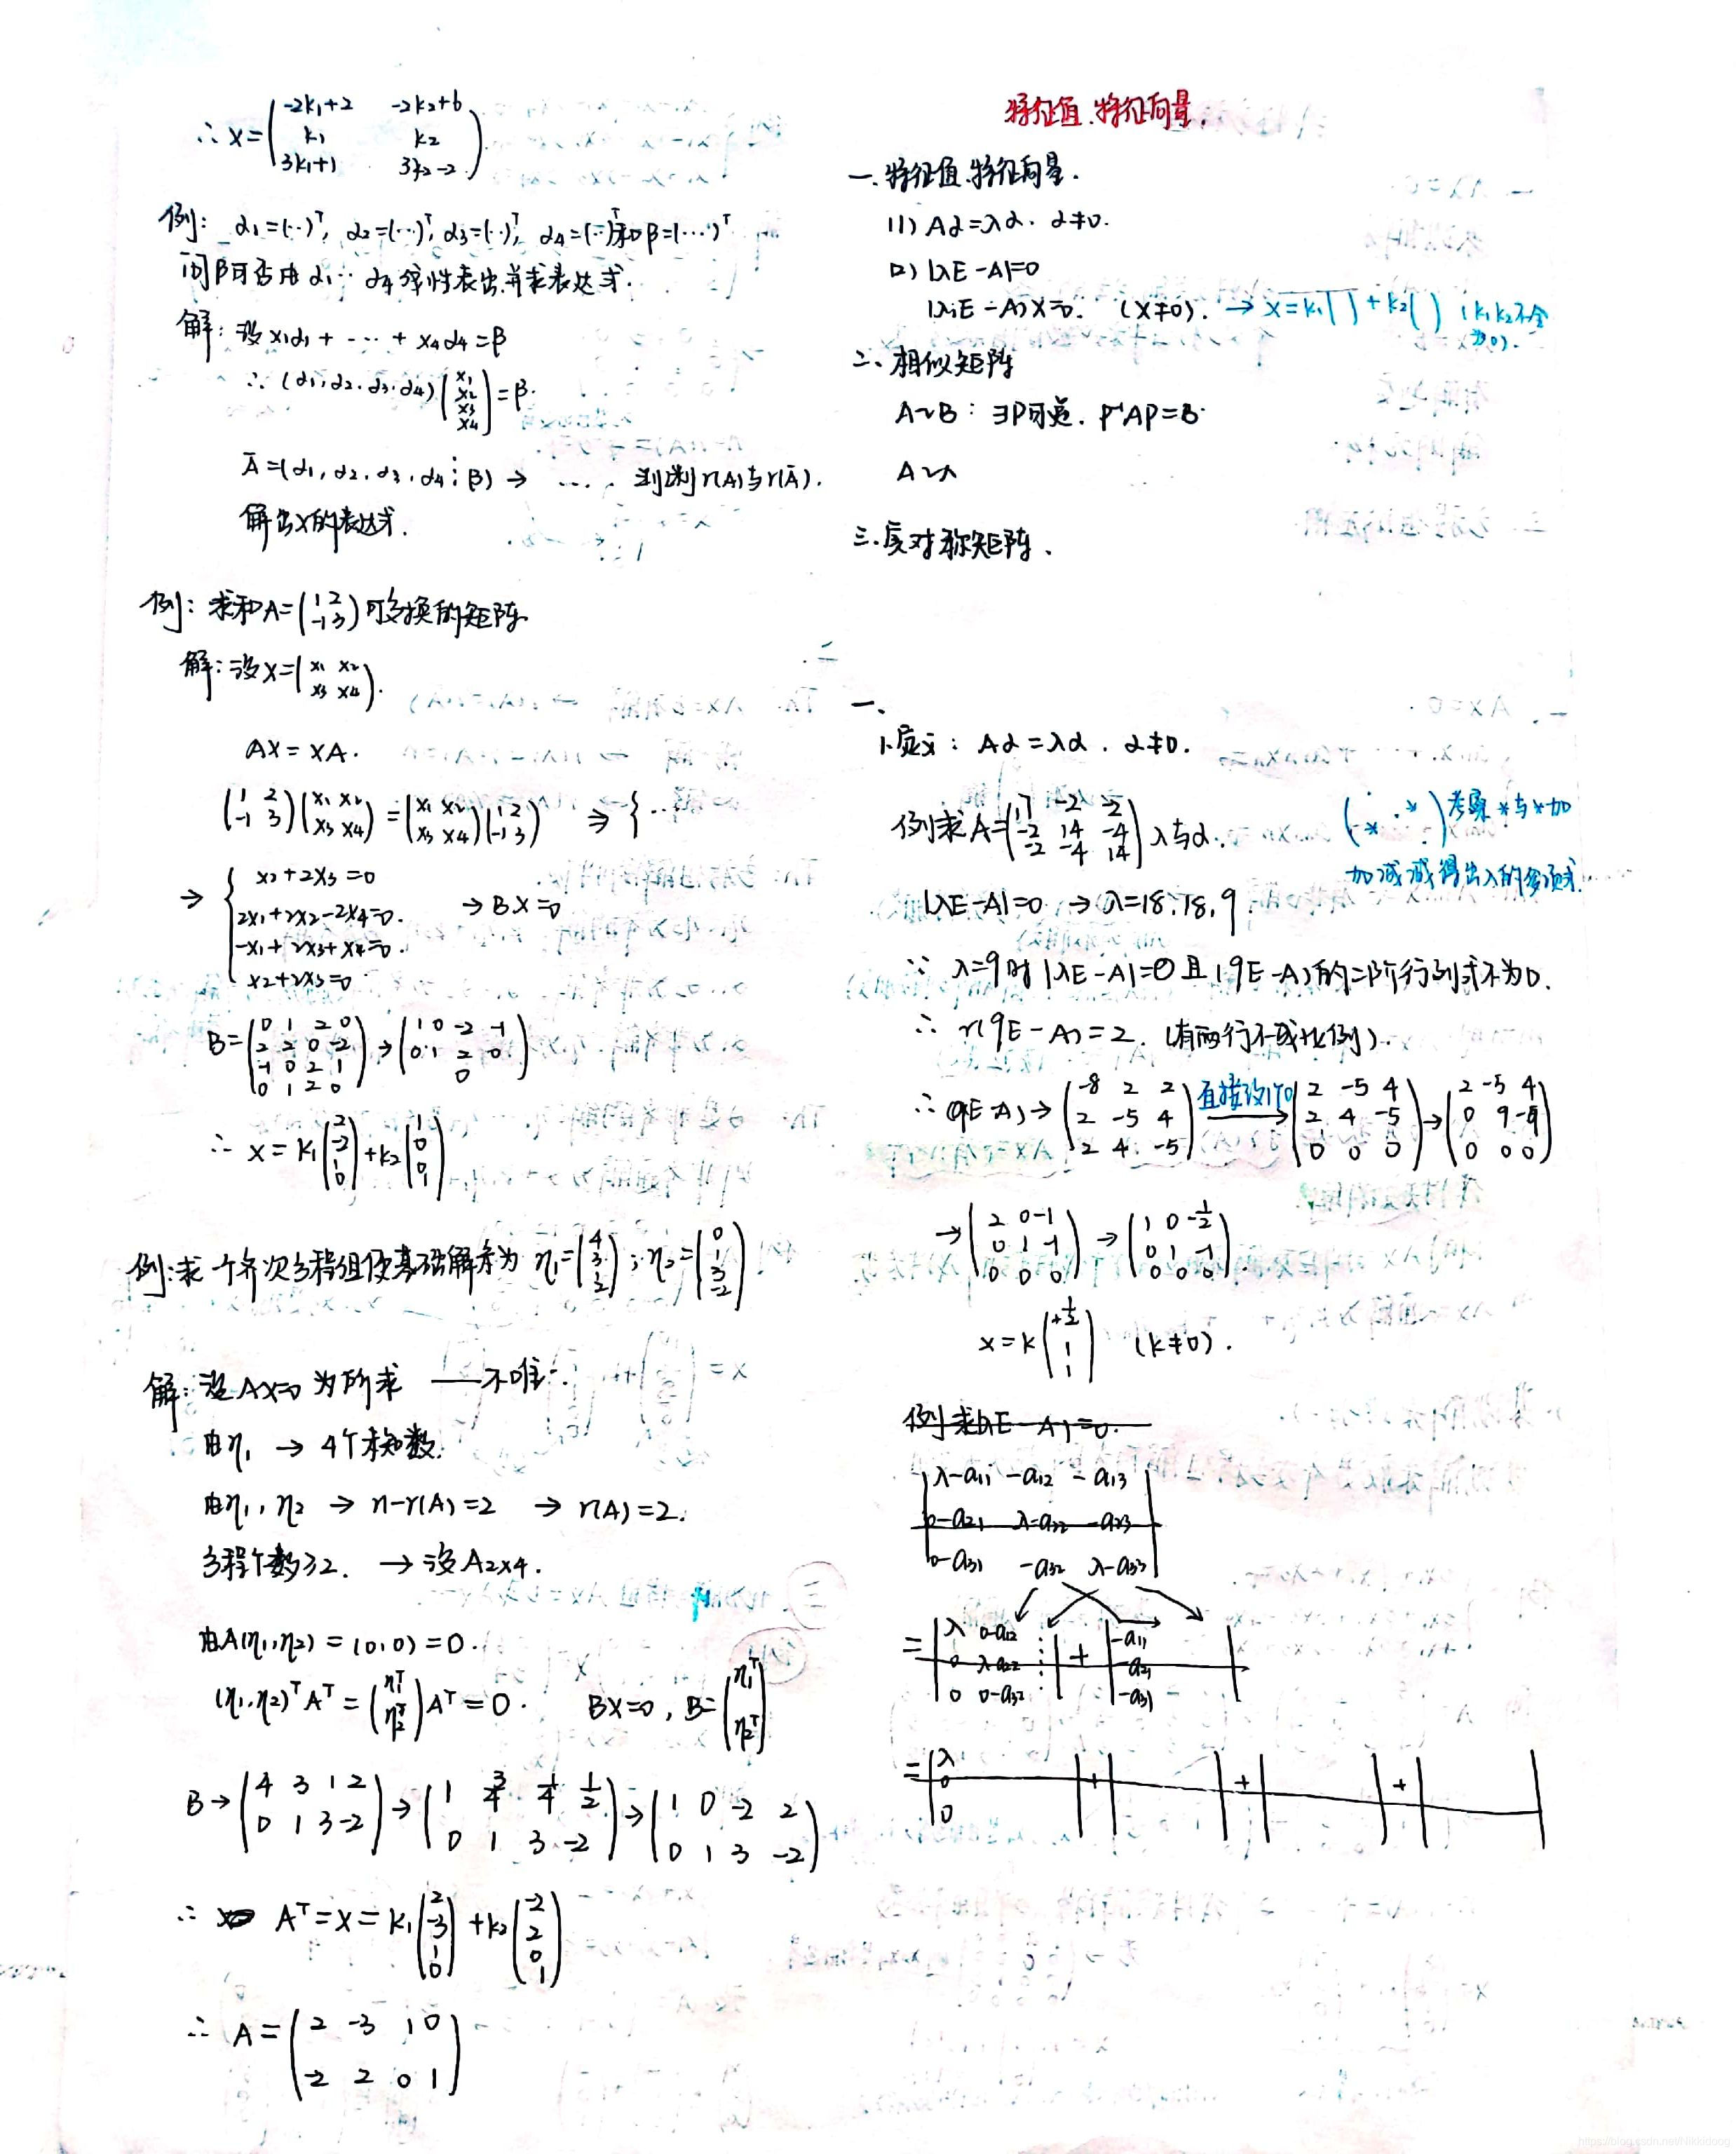 ∴ X = ( -2k₁+2 -2k₂+6
k₁ k₂
3k₁+1 3k₂-2 )
例: α₁=(··)ᵀ, α₂=(···)ᵀ, α₃=(··)ᵀ, α₄=(··)ᵀ和β=(···)ᵀ
问β可否由α₁··α₄线性表出并求表达式.
解: 设x₁α₁ + ··· + x₄α₄ = β
∴ (α₁,α₂.α₃.α₄) ( x₁
x₂
x₃
x₄ ) = β.
Ā=(α₁,α₂.α₃.α₄⋮β) → ···· 判断r(A)与r(Ā).
解出X的表达式.
例: 求和A= ( 1 2
-1 3 ) 可交换的矩阵
解: 设X= ( x₁ x₂
x₃ x₄ ).
AX = XA.
( 1 2
-1 3 ) ( x₁ x₂
x₃ x₄ ) = ( x₁ x₂
x₃ x₄ ) ( 1 2
-1 3 ) ⇒ { ··
→ { x₂+2x₃=0
2x₁+2x₂-2x₄=0.
-x₁+2x₃+x₄=0.
x₂+2x₃=0
→ BX=0
B= ( 0 1 2 0
2 2 0 -2
-1 0 2 1
0 1 2 0 ) → ( 1 0 -2 -1
0 1 2 0
0 )
∴ X = k₁ ( 2
-2
1
0 ) + k₂ ( 1
0
0
1 )
例: 求一个齐次方程组使基础解系为 η₁= ( 4
3
1
2 ) ; η₂= ( 0
1
3
-2 )
解: 设AX=0 为所求 —— 不唯一.
由η₁ → 4个未知数.
由η₁, η₂ → n-r(A)=2 → r(A)=2.
方程个数≥2. → 设A₂ₓ₄.
由A(η₁,η₂) = (0,0) = 0.
(η₁,η₂)ᵀAᵀ = ( η₁ᵀ
η₂ᵀ ) Aᵀ = 0. BX=0, B= ( η₁ᵀ
η₂ᵀ )
B → ( 4 3 1 2
0 1 3 -2 ) → ( 1 3/4 1/4 1/2
0 1 3 -2 ) → ( 1 0 -2 2
0 1 3 -2 )
∴ Aᵀ = X = k₁ ( 2
-3
1
0 ) + k₂ ( -2
2
0
1 )
∴ A = ( 2 -3 1 0
-2 2 0 1 )
特征值、特征向量.
一. 特征值、特征向量.
(1) Aα=λα. α≠0.
(2) |λE-A|=0
(λᵢE-A)X=0. (X≠0). → X=k₁( ) + k₂( ) (k₁k₂不全
为0).
二、相似矩阵
A~B: ∃P可逆. P⁻¹AP=B.
A~Λ
三. 反对称矩阵.
一.
1. 定义: Aα=λα. α≠0.
例求A= ( 17 -2 -2
-2 14 -4
-2 -4 14 ) λ与α.
( · *
* · ) 考虑*与*加
加减减得出λ的多项式.
|λE-A|=0 → λ=18, 18, 9.
∵ λ=9时 |λE-A|=0 且(9E-A)的二阶行列式不为0.
∴ r(9E-A)=2. (有两行不成比例).
∴ (9E-A) → ( -8 2 2
2 -5 4
2 4 -5 ) 直接设1行0 → ( 2 -5 4
2 4 -5
0 0 0 ) → ( 2 -5 4
0 9 -9
0 0 0 )
→ ( 2 0 -1
0 1 -1
0 0 0 ) → ( 1 0 -1/2
0 1 -1
0 0 0 ).
X = k ( +1/2
1
1 ) (k≠0).
例求|λE-A|=0.
| λ-a₁₁ -a₁₂ -a₁₃
0-a₂₁ λ-a₂₂ -a₂₃
0-a₃₁ -a₃₂ λ-a₃₃ |
= | λ 0-a₁₂ ⋮
0 λ-a₂₂ ⋮
0 0-a₃₂ | + | -a₁₁
-a₂₁
-a₃₁ |
= | λ
0
0 | + | | + | | + | |
https://blog.csdn.net/Nikkidong